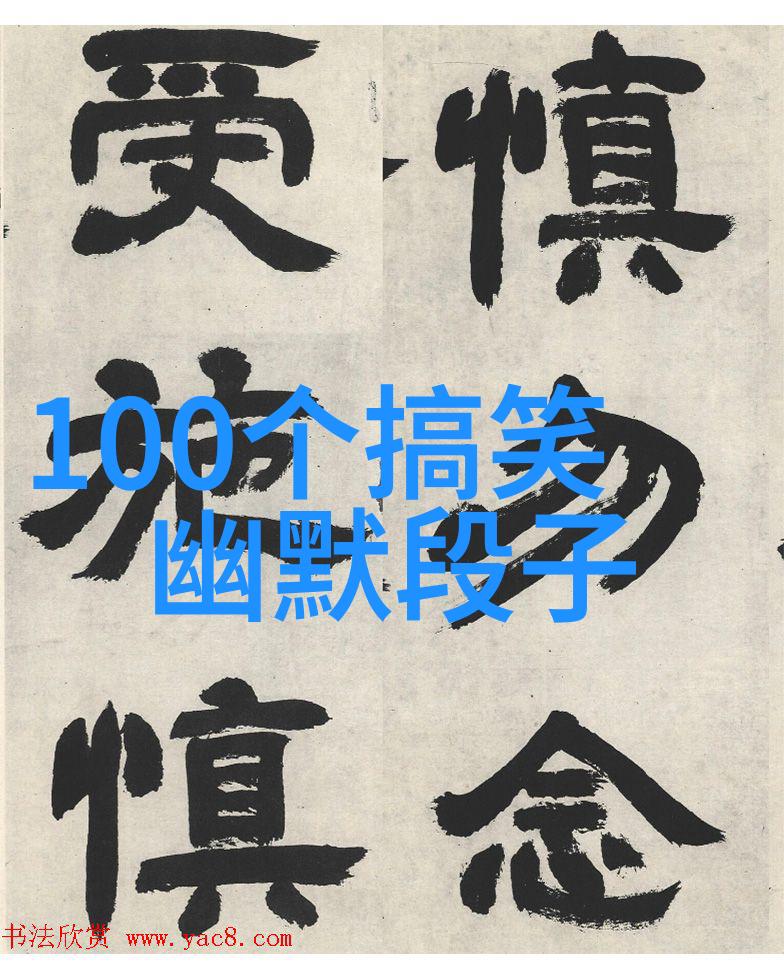 慎勿念
受施慎
100个搞笑
幽默段子
书法欣赏 www.yac8.com